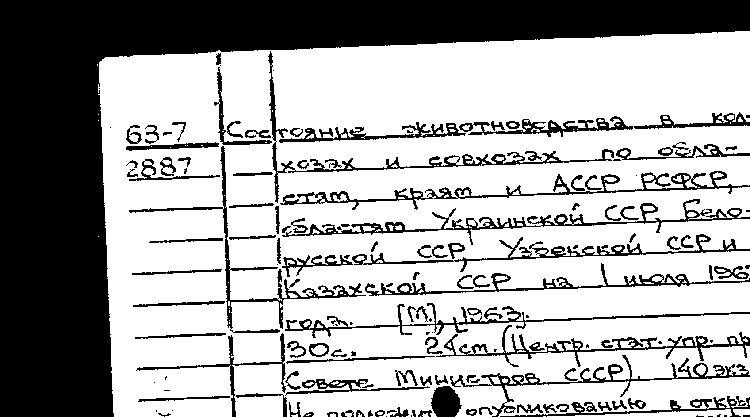 63-7 Состояние животноводства в кол-
2887 хозах и совхозах по обла-
стям, краям и АССР РСФСР,
областям Украинской ССР, Бело-
русской ССР, Узбекской ССР и
Казахской ССР на 1 июля 196
года. [М], 1963.
30с. 24см. (Центр. стат. упр. пр
Совете Министров СССР). 140 экз
Не подлежит опубликованию в откры